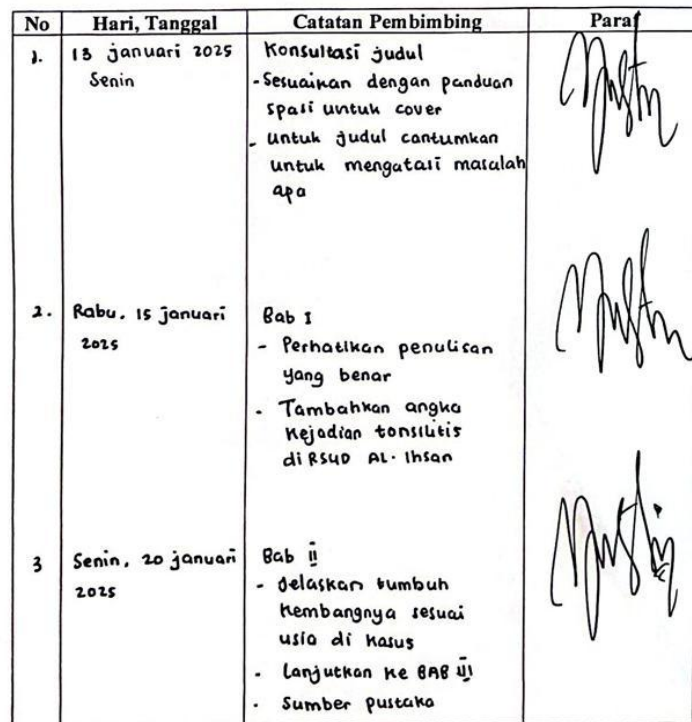 No Hari, Tanggal Catatan Pembimbing Paraf
1. 13 januari 2025 Konsultasi judul
Senin - Sesuaikan dengan panduan
spasi untuk cover
- untuk judul cantumkan
untuk mengatasi masalah
apa
2. Rabu, 15 januari Bab I
2025 - Perhatikan penulisan
yang benar
- Tambahkan angka
kejadian tonsilitis
di RSUD AL-Ihsan
3 Senin, 20 januari Bab II
2025 - Jelaskan tumbuh
kembangnya sesuai
usia di kasus
- Lanjutkan ke BAB III
- Sumber pustaka